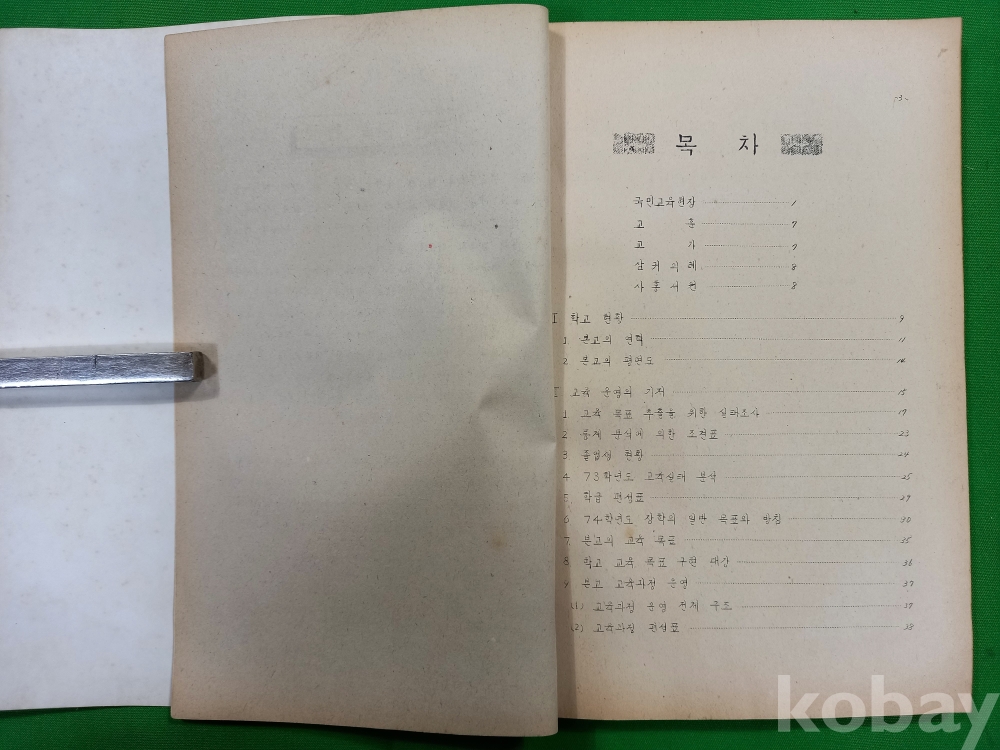 -3-
목 차
국민교육헌장 1
교 훈 7
교 가 7
삼귀의례 8
사홍서원 8
I 학교 현황 9
1 본교의 연혁 11
2 본교의 평면도 14
교육 운영의 기저 15
1 교육 목표 추출을 위한 실태조사 17
2 문제 분석에 의한 조견표 23
3 졸업생 현황 24
4 73학년도 교육실태 분석 25
5 학급 편성표 29
6 74학년도 장학의 일반 목표와 방침 30
7 본교의 교육 목표 35
8 학교 교육 목표 구현 대강 36
9 본교 교육과정 운영 37
(1) 교육과정 운영 전체 구조 37
(2) 교육과정 편성표 38
kobay